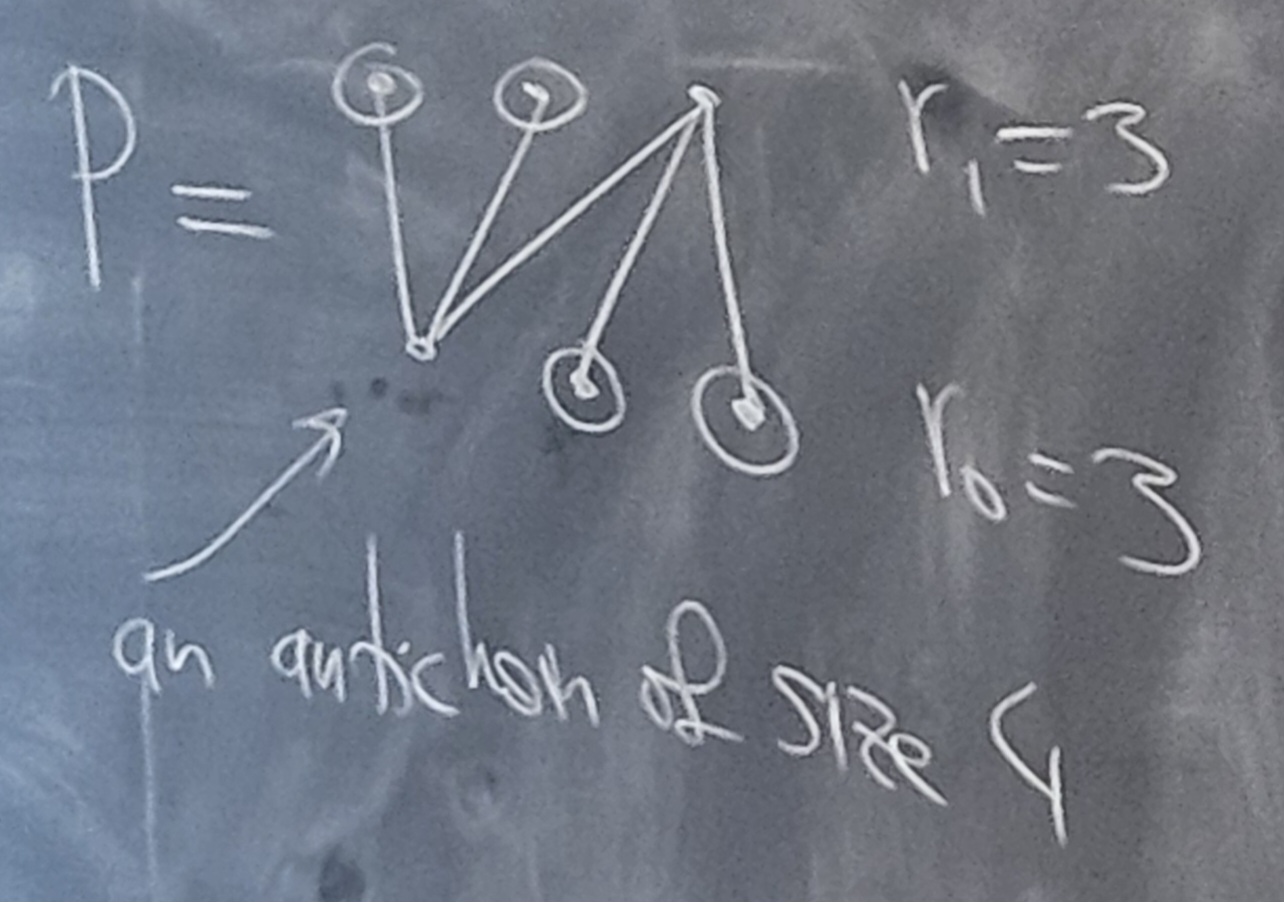 P =
r₁ = 3
r₀ = 3
an antichain of size 4